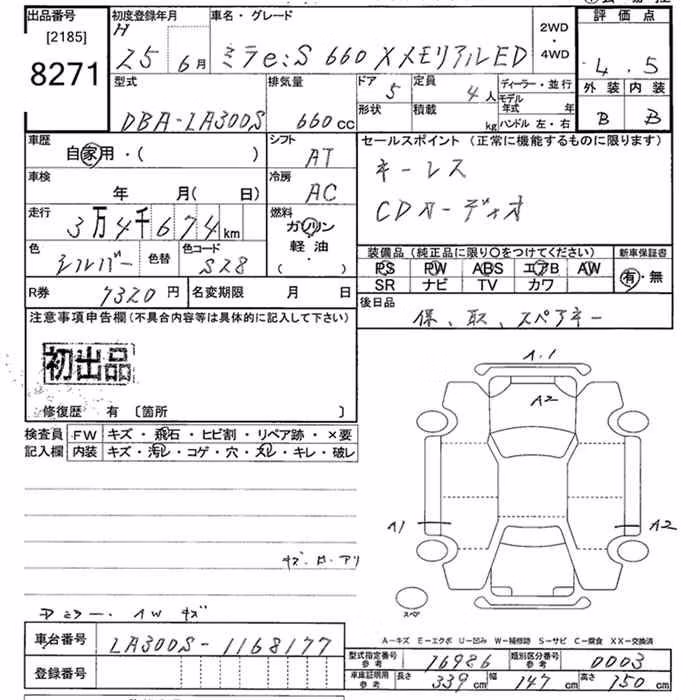 出品番号 [2185] 8271
初度登録年月 H 25 6月
車名・グレード ミラe:S 660 X メモリアルED
2WD・4WD
評価点 4.5
外装 内装
B B
型式 DBA-LA300S
排気量 660cc
ドア 5
定員 4人
形状
積載 kg
ディーラー・並行
モデル年式 年
ハンドル 左・右
車歴 自家用・( )
シフト AT
セールスポイント (正常に機能するものに限ります)
キーレス
CDオーディオ
車検 年 月( 日)
冷房 AC
走行 3万4千674km
燃料 ガソリン 軽油 ( ・ )
色 シルバー
色替
色コード S28
装備品 (純正品に限り○をつけてください)
新車保証書
PS PW ABS エアB AW
有・無
SR ナビ TV カワ
R券 7320円
名変期限 月 日
後日品
保、取、スペアキー
注意事項申告欄 (不具合内容等は具体的に記入して下さい)
初出品
修復歴 有 〔箇所 〕
検査員記入欄
FW キズ・飛石・ヒビ割・リペア跡・×要
内装 キズ・汚レ・コゲ・穴・スレ・キレ・破レ
A.1
A2
A1
A2
スペア
A-キズ E-エクボ U-凹み W-補修跡 S-サビ C-腐食 XX-交換済
車台番号 LA300S-1168177
登録番号
型式指定番号参考 16986
類別区分番号参考 0003
車庫証明用参考 長さ 339cm 幅 147cm 高さ 150cm